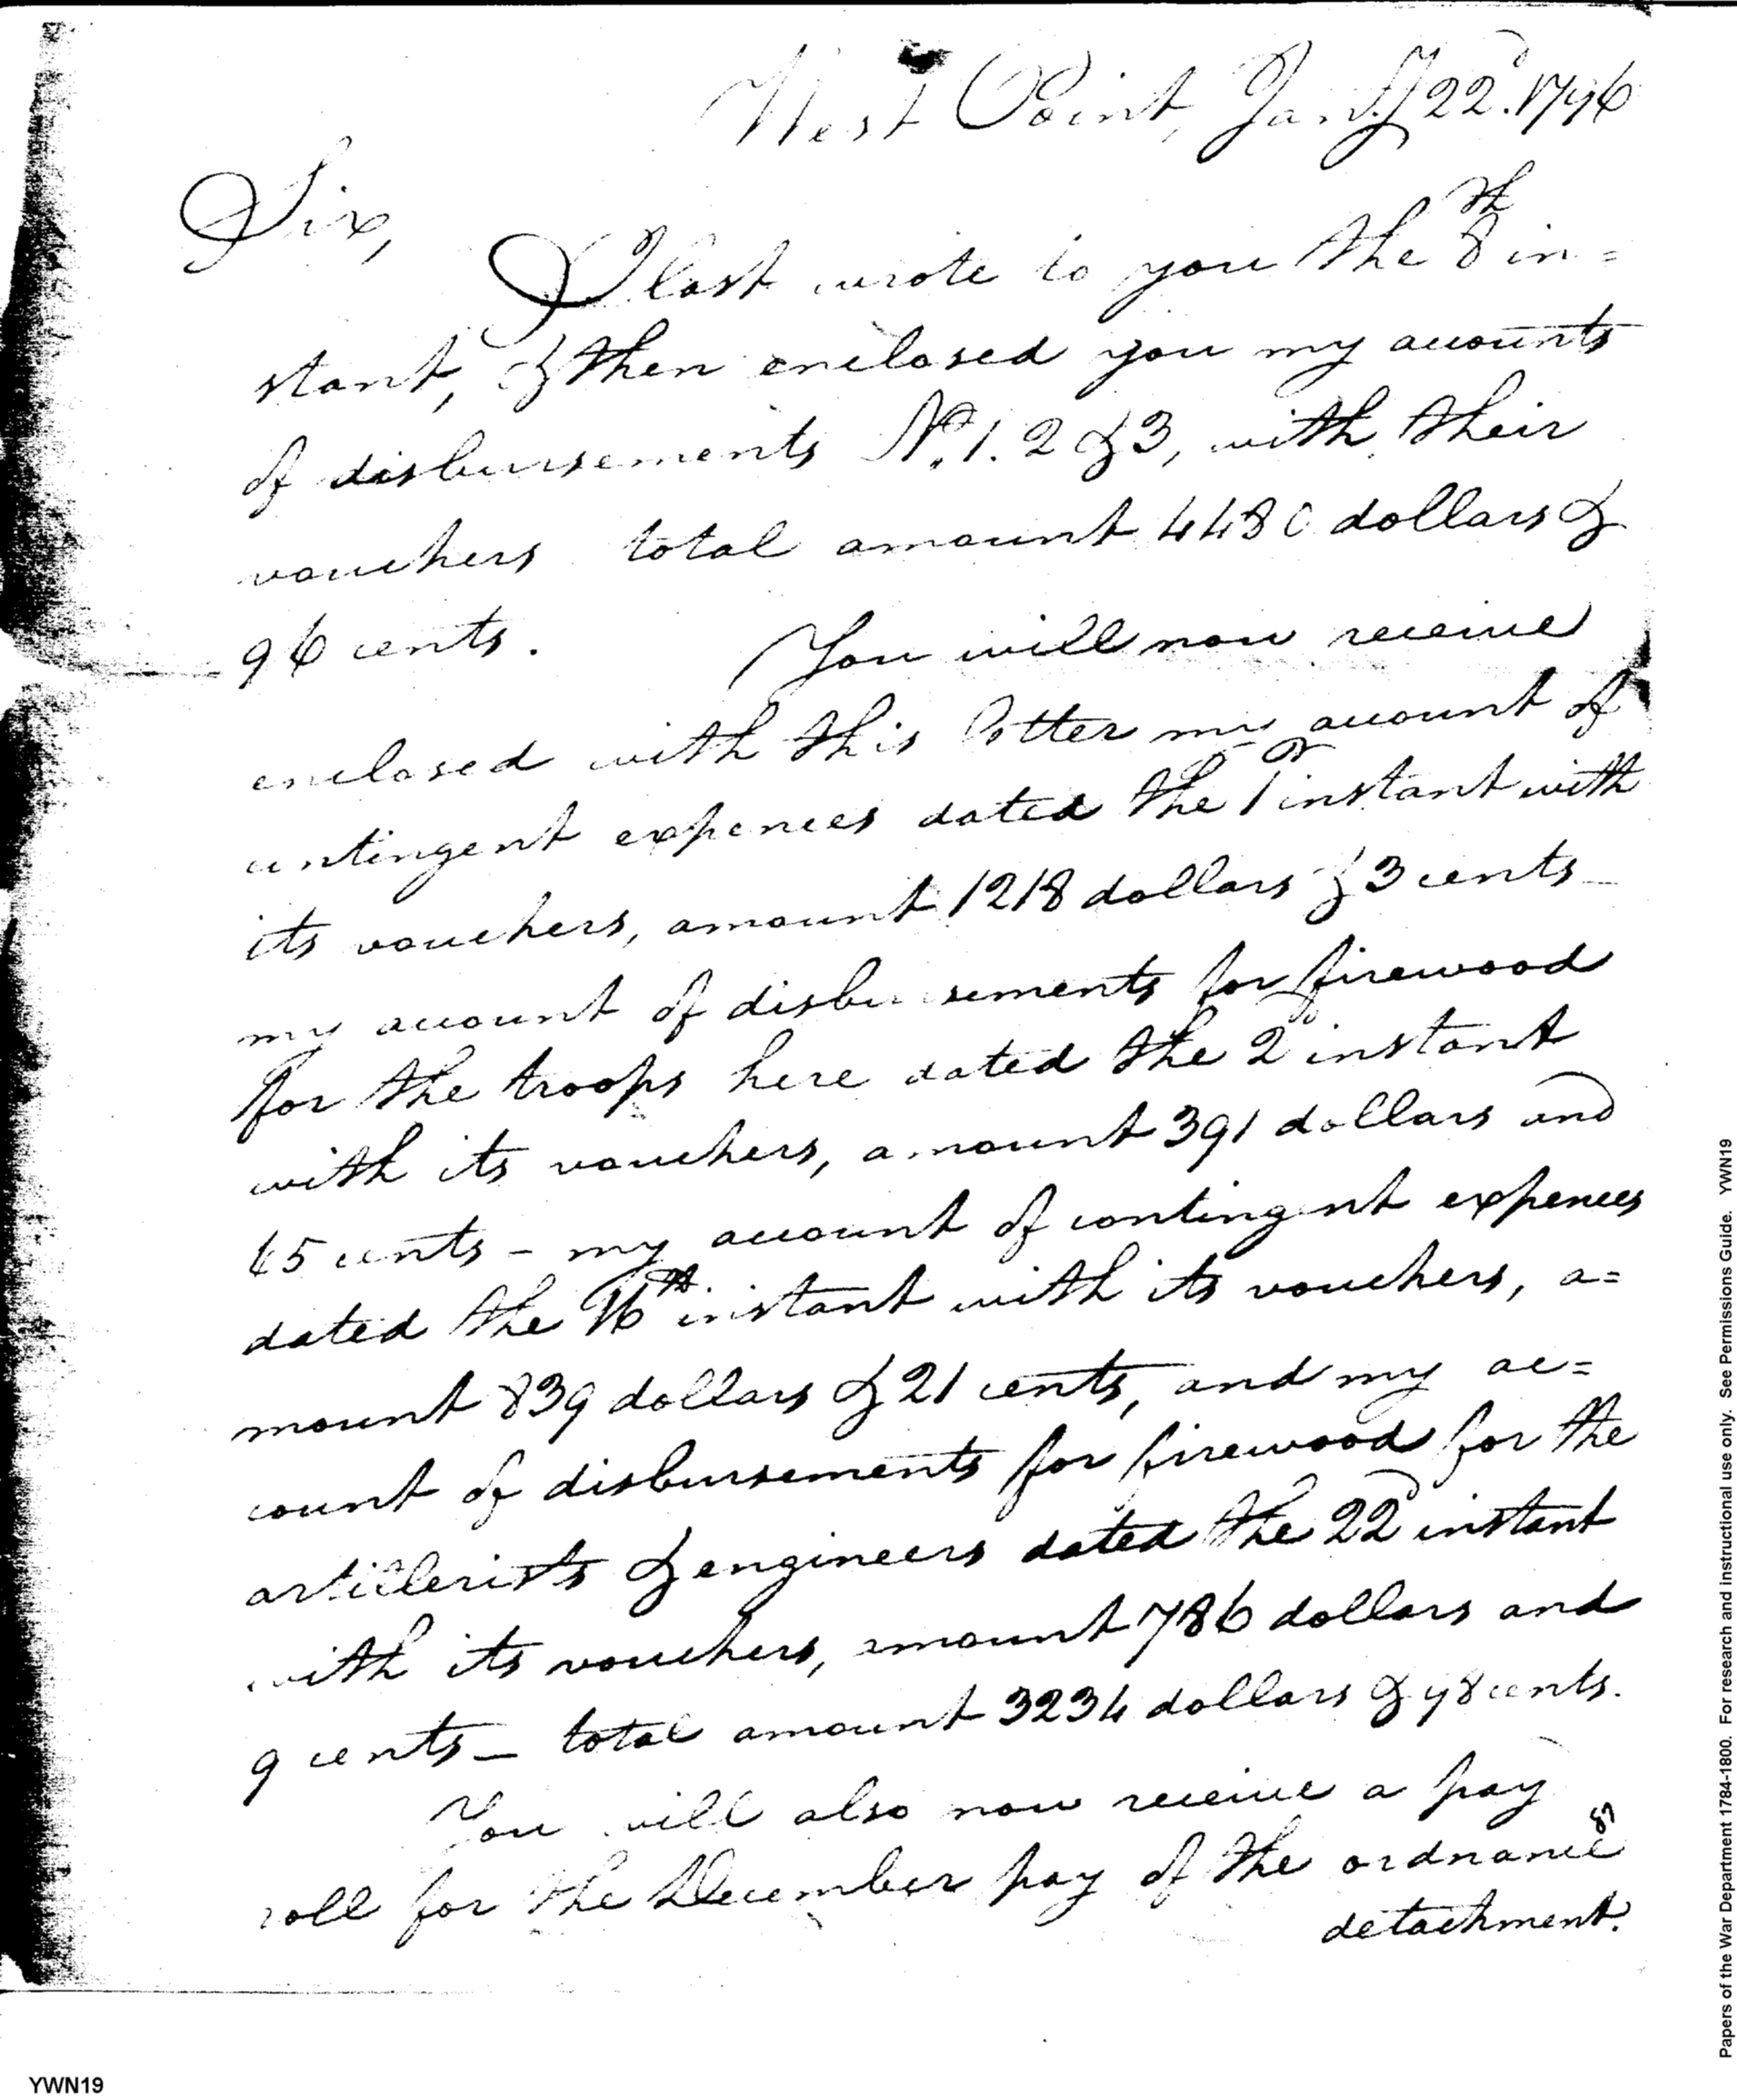 West Point, Jan.y 22d. 1796
Sir,
I last wrote to you the 8th in=
stant, & then enclosed you my accounts
of disbursements No. 1. 2 & 3, with their
vouchers total amount 4480 dollars &
96 cents. You will now receive
enclosed with this letter my account of
contingent expences dated the 1st instant with
its vouchers, amount 1218 dollars & 3 cents—
my account of disbursements for firewood
for the troops here dated the 2d instant
with its vouchers, amount 391 dollars and
65 cents – my account of contingent expences
dated the 16th instant with its vouchers, a=
mount 839 dollars & 21 cents, and my ac=
count of disbursements for firewood for the
artillerists & engineers dated the 22d instant
with its vouchers, amount 786 dollars and
9 cents — total amount 3234 dollars & 98 cents.
You will also now receive a pay
roll for the December pay of the ordnance
detachment.
YWN19
Papers of the War Department 1784-1800. For research and instructional use only. See Permissions Guide. YWN19